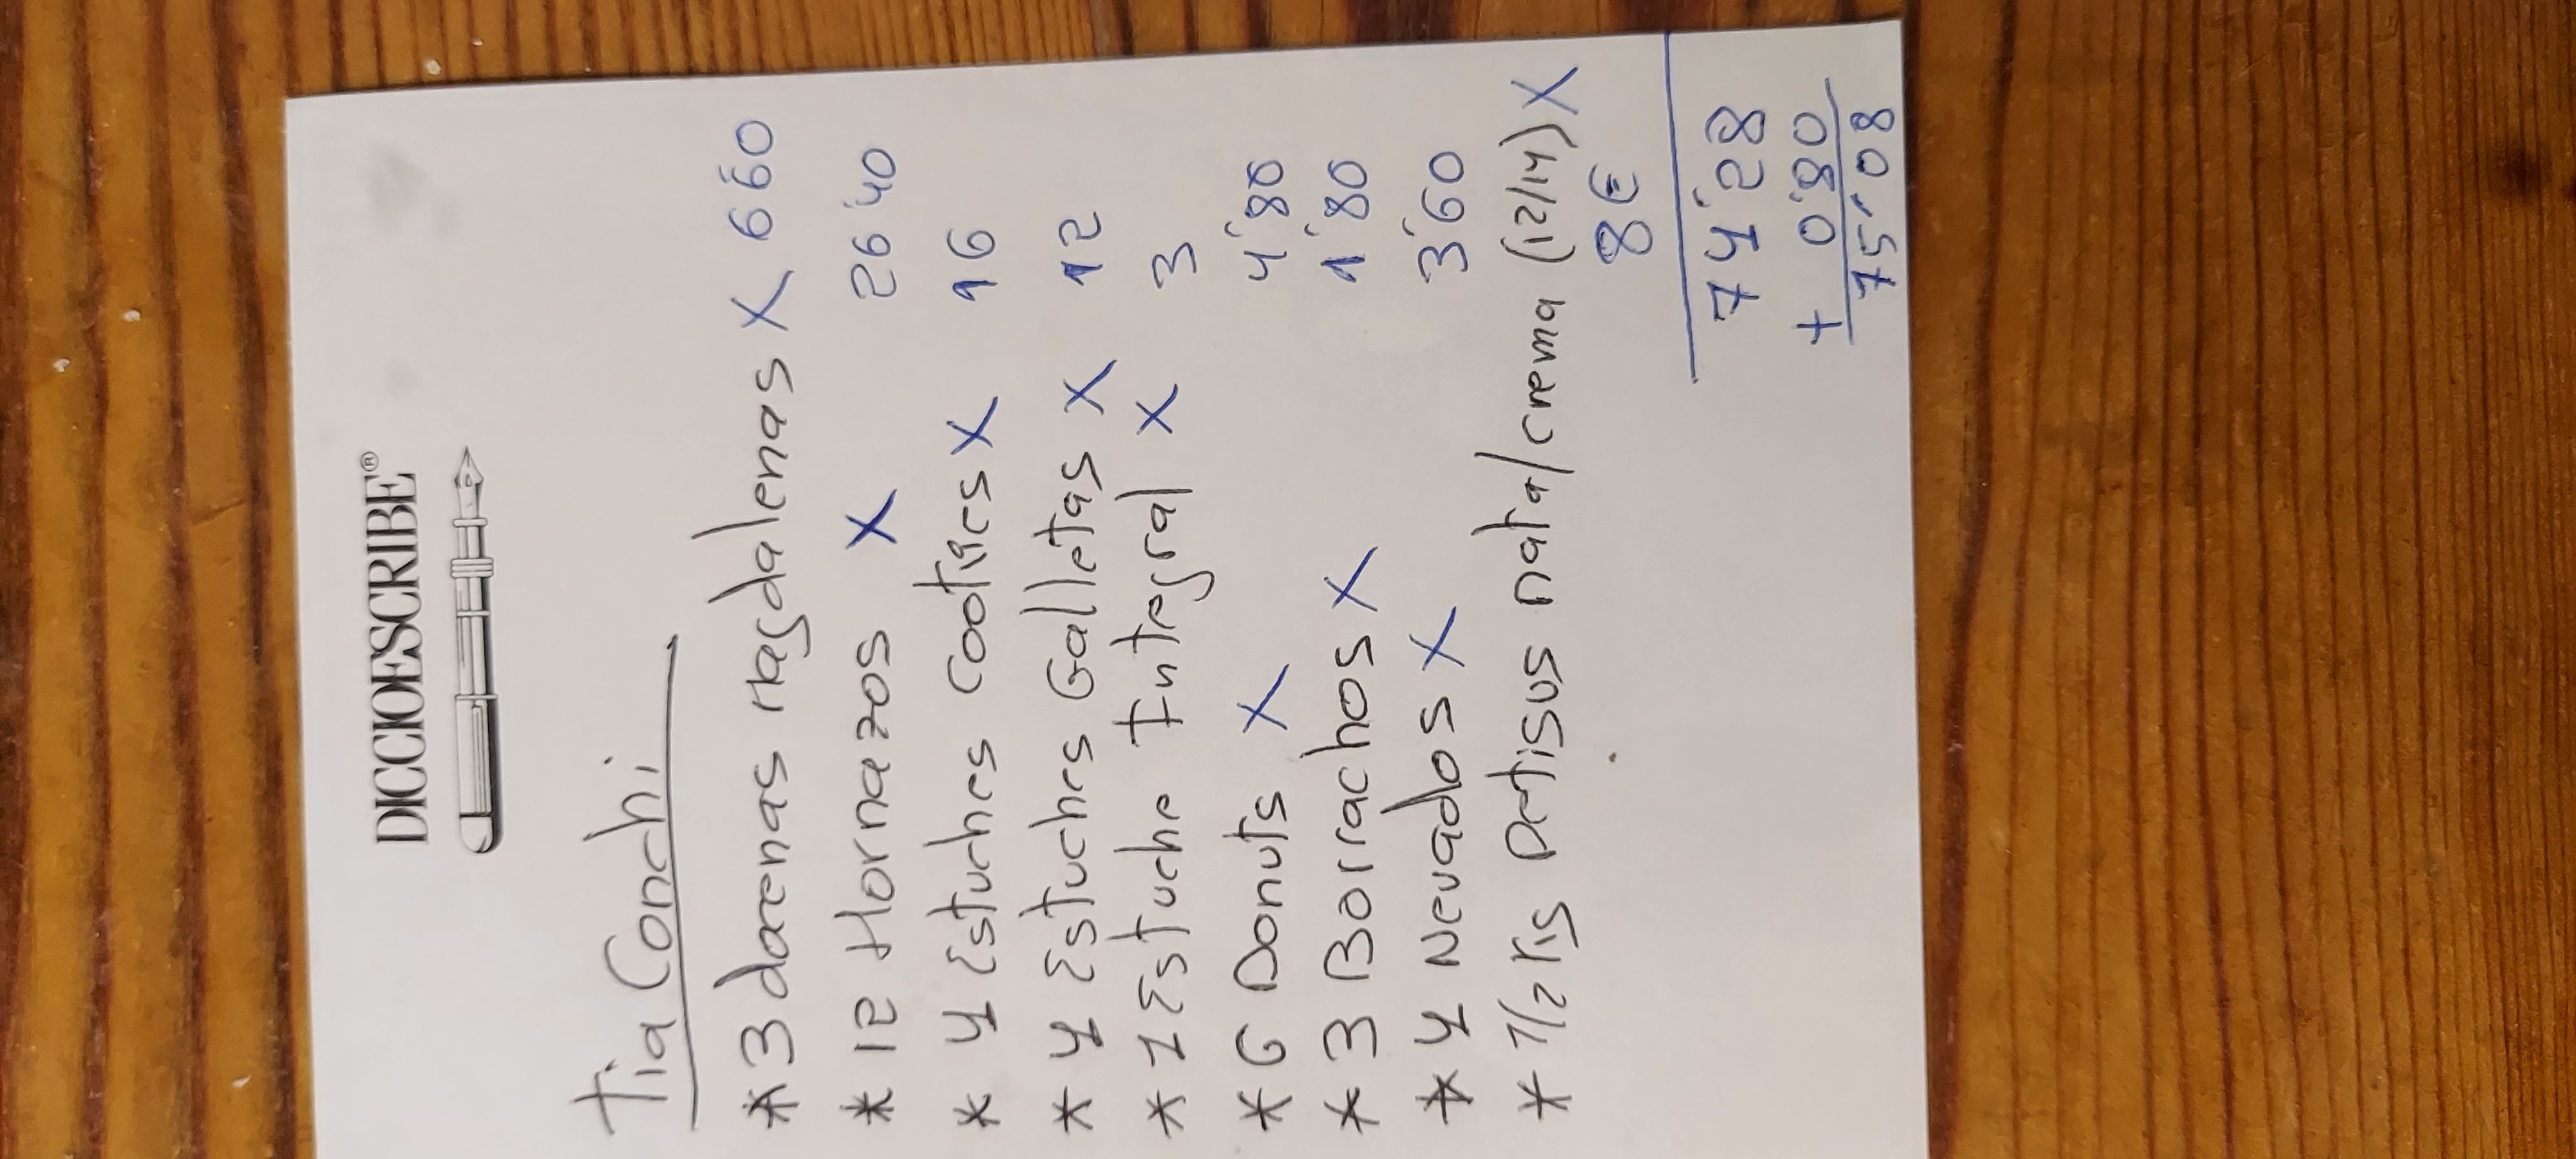 DICCIOESCRIBE®
Tia Conchi
* 3 docenas Magdalenas X 6'60
* 12 Hornazos X 26'40
* 4 Estuches cookies X 16
* 4 Estuches Galletas X 12
* 1 Estuche Integral X 3
* 6 Donuts X 4'80
* 3 Borrachos X 1'80
* 4 Nevados X 3'60
* 1/2 Kg Petisus nata/crema (12/14) X
8€
74,28
+ 0'80
75'08